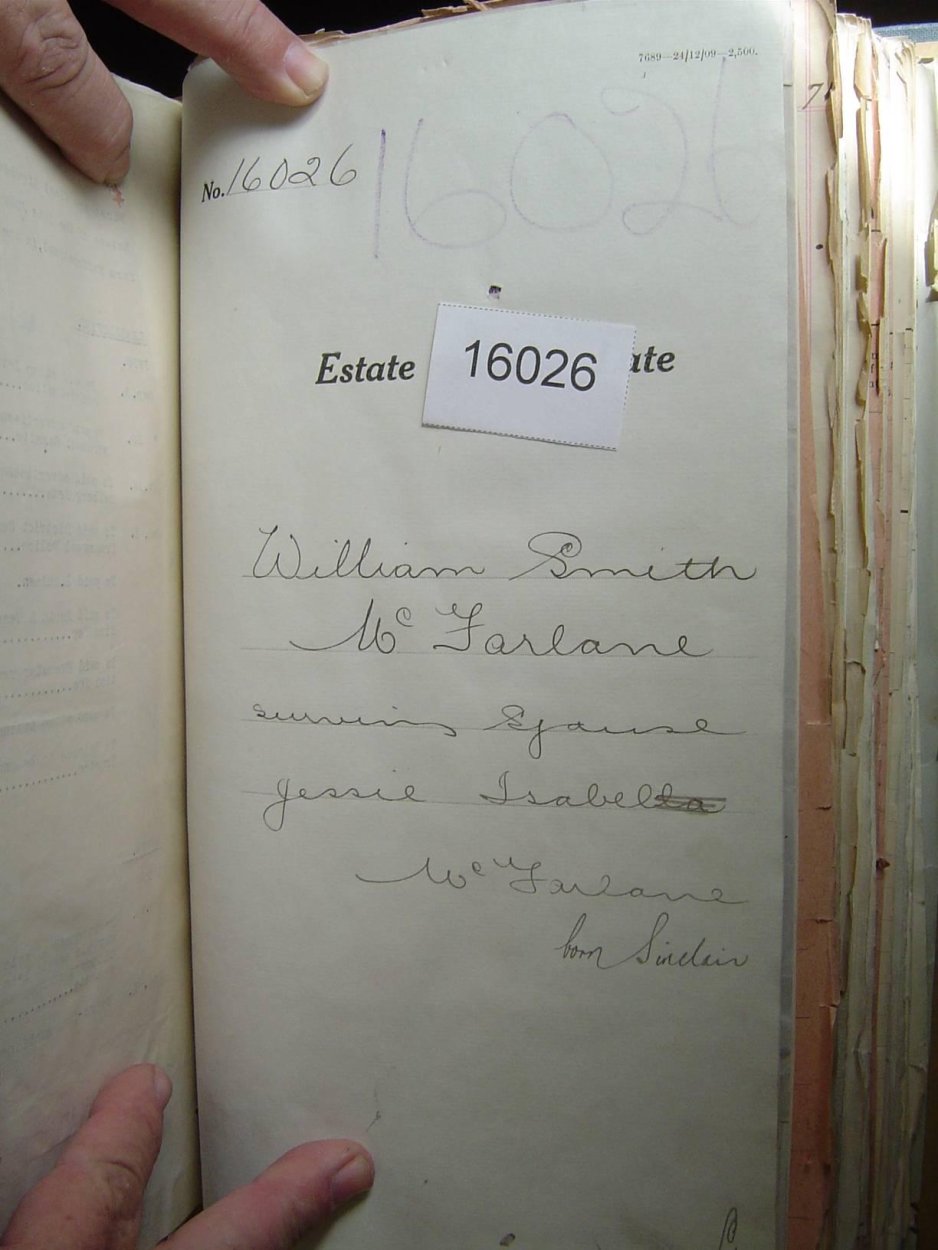 7689—24/12/09—2,500.
No. 16026
16026
Estate
16026
ate
William Smith
Mc Farlane
surviving Spouse
Jessie Isabella
Mc Farlane
born Sinclair